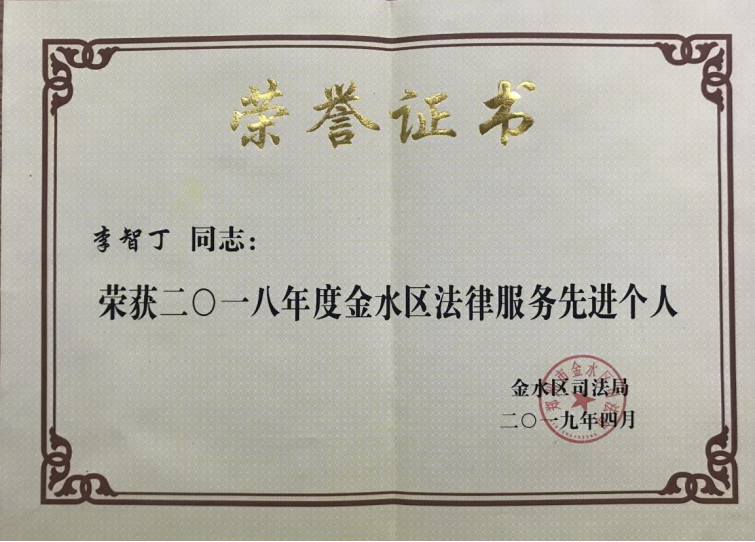 荣誉证书
李智丁 同志：
荣获二〇一八年度金水区法律服务先进个人
金水区司法局
二〇一九年四月